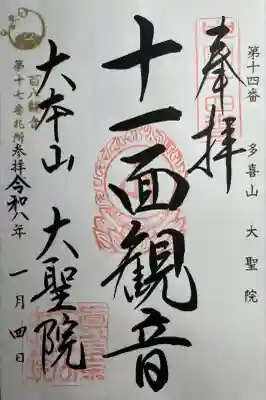 第十四番 多喜山 大聖院
奉拝
十一面観音
大本山 大聖院
百八観音
第十七番札所参拝
令和八年 一月 四日